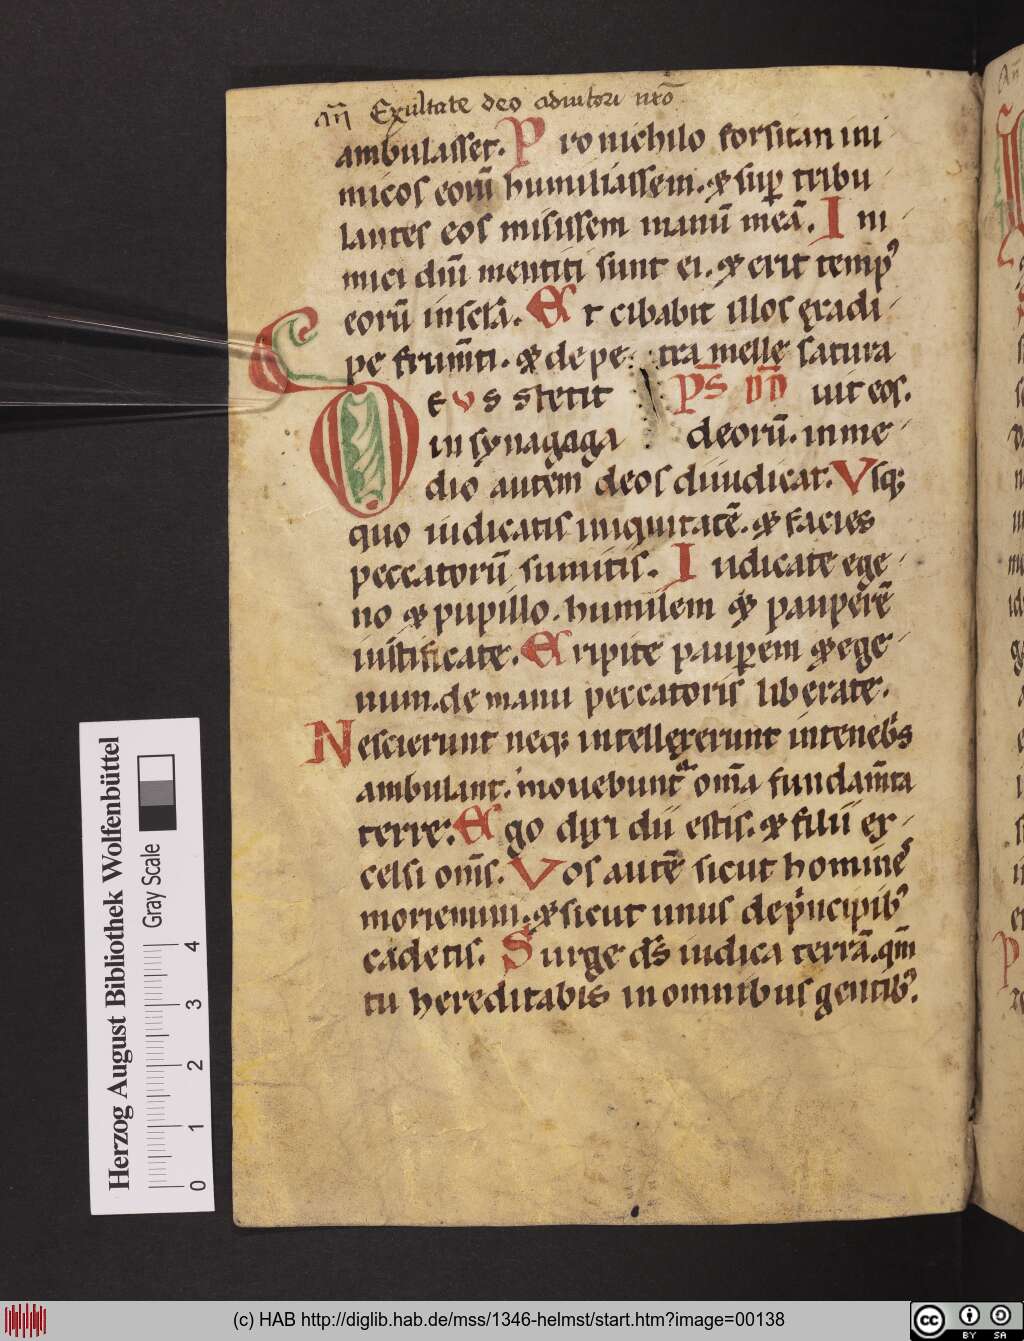 an̄ Exultate deo adiutori nr̄o
ambulasset. Pro nichilo forsitan ini
micos eoꝝ humiliassem. & suꝑ tribu
lantes eos misissem manū meā. Ini
mici dn̄i mentiti sunt ei. & erit tempꝰ
eorū in scl̄a. Et cibabit illos ex adi
pe frum̄ti. & de petra melle satura
Deus stetit Ps̄ DD̄ uit eos.
in synagoga deorū. in me
dio autem deos diiudicat. Vsq;
quo iudicatis iniquitatē. & facies
peccatorū sumitis. Iudicate ege
no & pupillo. humilem & pauperē
iustificate. Eripite pauꝑem & ege
num. de manu peccatoris liberate.
Nescierunt neq; intellexerunt in tenebris
ambulant. mouebunt̉ om̄a fundam̄ta
terre. Ego dixi dii estis. & filii ex
celsi om̄s. Vos autē sicut hominēs
moriemini. & sicut unus de principibꝰ
cadetis. Surge ds̄ iudica terrā. qm̄
tu hereditabis in omnibus gentibꝰ.
Herzog August Bibliothek Wolfenbüttel
Gray Scale
0 1 2 3 4
(c) HAB http://diglib.hab.de/mss/1346-helmst/start.htm?image=00138
cc BY SA